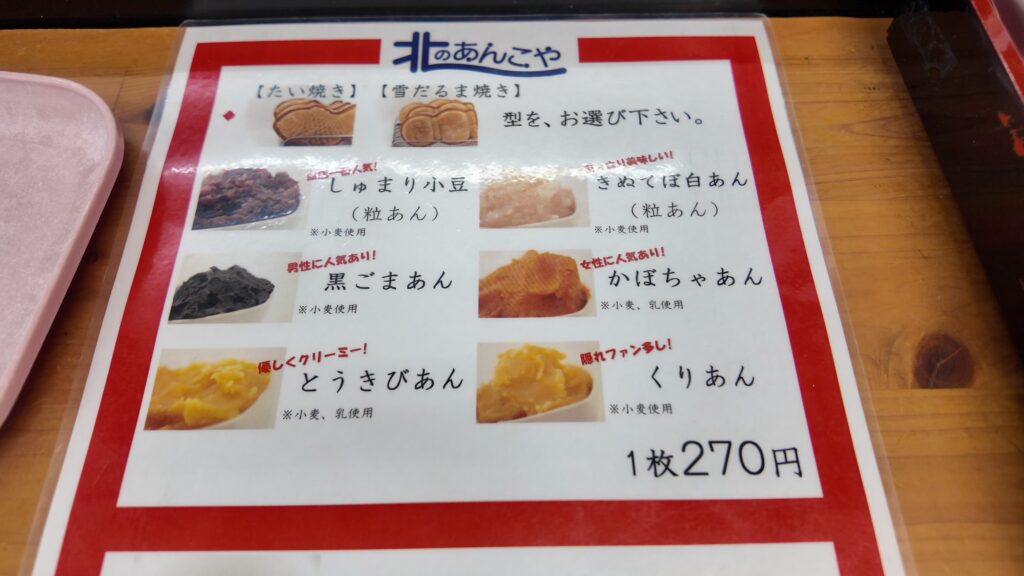 北のあんこや
【たい焼き】 【雪だるま焼き】
型を、お選び下さい。
人気!
しゅまり小豆
(粒あん)
※小麦使用
美味しい!
きぬてぼ白あん
(粒あん)
※小麦使用
男性に人気あり!
黒ごまあん
※小麦使用
女性に人気あり!
かぼちゃあん
※小麦、乳使用
優しくクリーミー!
とうきびあん
※小麦、乳使用
隠れファン多し!
くりあん
※小麦使用
1枚270円